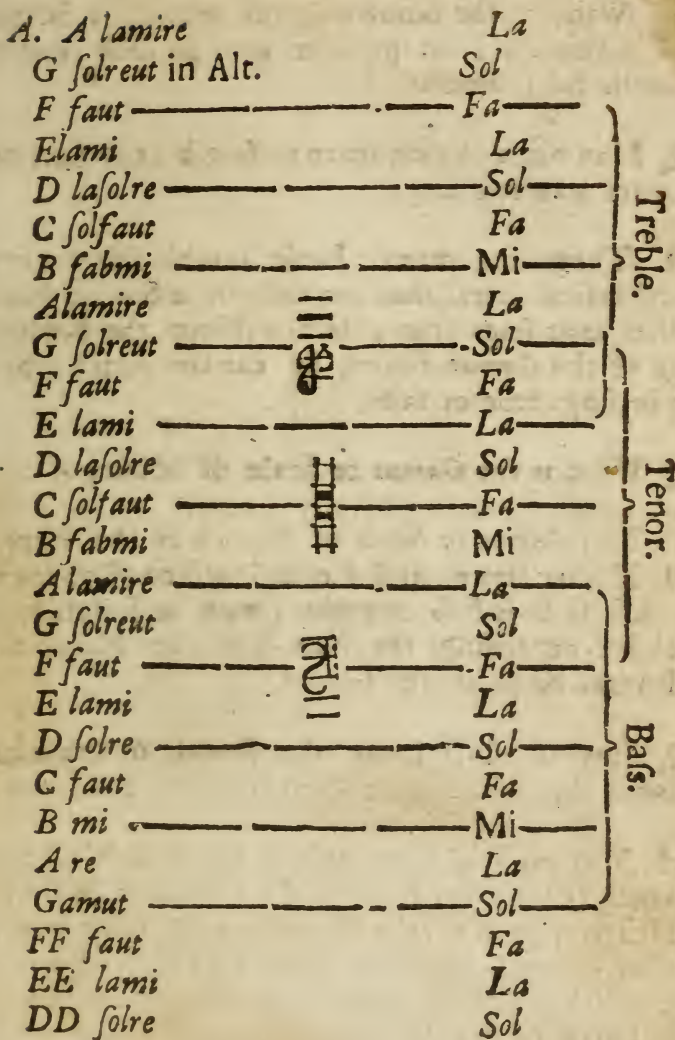 A. A lamire La
G ſolreut in Alt. Sol
F faut Fa
Elami La
D laſolre Sol
C ſolfaut Fa
B fabmi Mi
Alamire La
G ſolreut Sol
F faut Fa
E lami La
D laſolre Sol
C ſolfaut Fa
B fabmi Mi
Alamire La
G ſolreut Sol
F faut Fa
E lami La
D ſolre Sol
C faut Fa
B mi Mi
A re La
Gamut Sol
FF faut Fa
EE lami La
DD ſolre Sol
Treble.
Tenor.
Baſs.